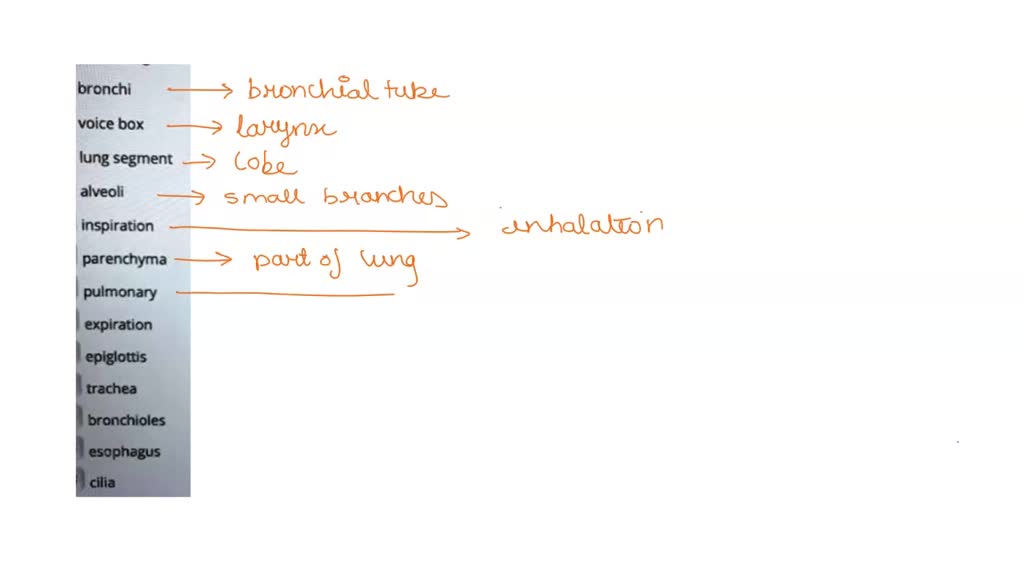 bronchi → bronchial tube
voice box → larynx
lung segment → lobe
alveoli → small branches
inspiration → inhalation
parenchyma → part of lung
pulmonary
expiration
epiglottis
trachea
bronchioles
esophagus
cilia